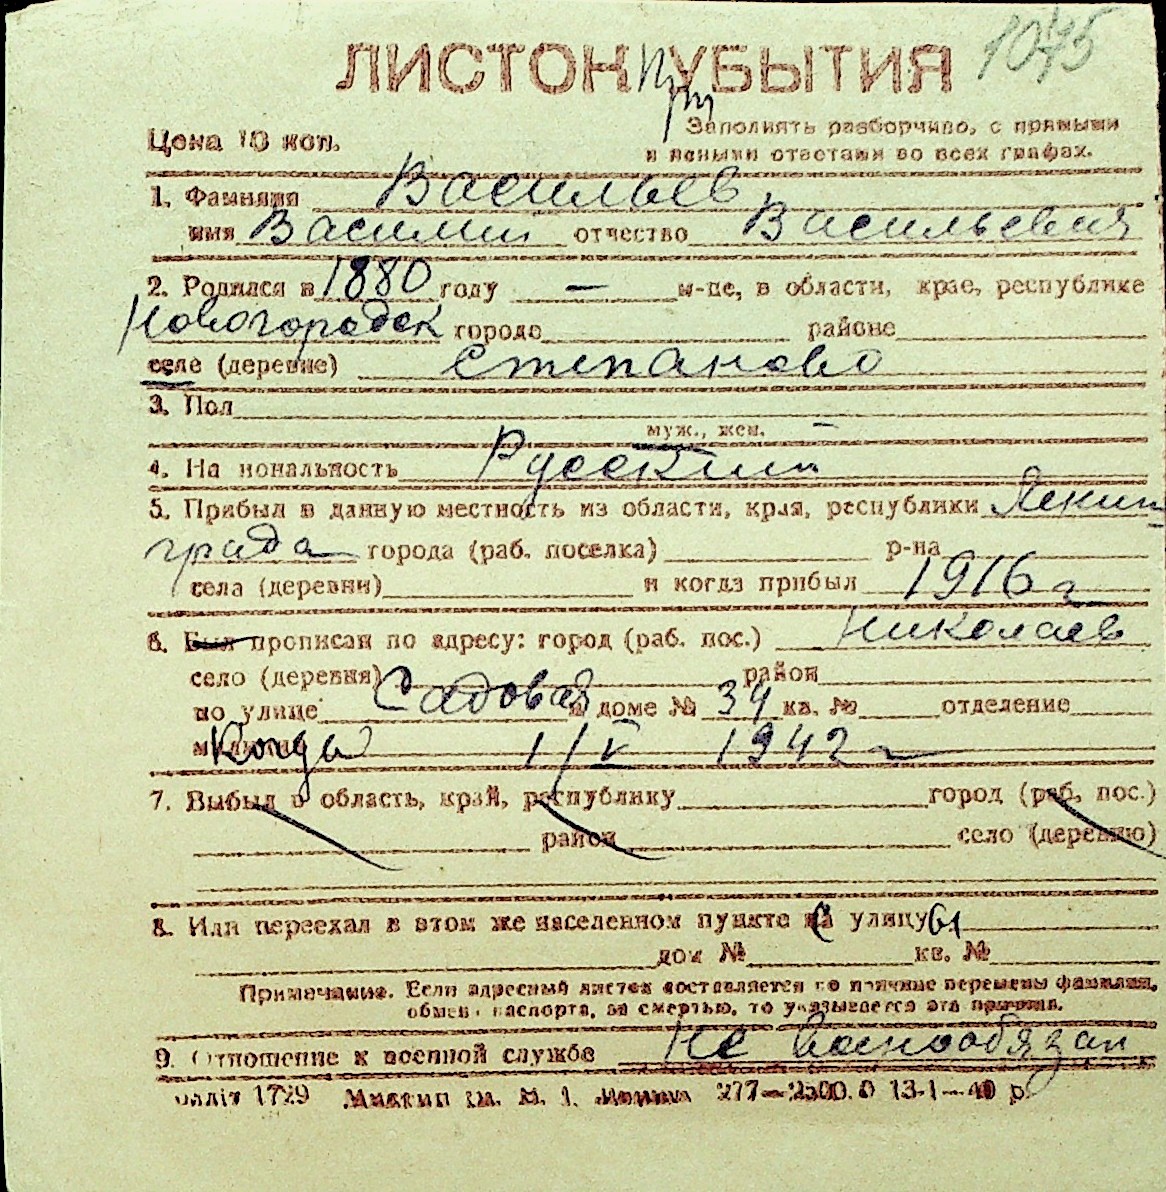 1075
ЛИСТОК УБЫТИЯ
При
Цена 10 коп.
Заполнять разборчиво, с прямыми
и ясными ответами во всех графах.
1. Фамилия Васильев
имя Василий отчество Васильевич
2. Родился в 1880 году — м-це, в области, крае, республике
Новогородск городе районе
селе (деревне) Степаново
3. Пол
муж., жен.
4. На иональность Русский
5. Прибыл в данную местность из области, края, республики Ленин
града города (раб. поселка) р-на
села (деревни) и когда прибыл 1916 г
6. Был прописан по адресу: город (раб. пос.) Николаев
село (деревня) район
по улице Садовая в доме № 34 кв. № отделение
милиции Когда 1/V 1942 г
7. Выбыл в область, край, республику город (раб. пос.)
район село (деревню)
8. Или переехал в этом же населенном пункте на улицу
дом № кв. №
Примечание. Если адресный листок составляется по причине перемены фамилии,
обмена паспорта, за смертью, то указывается эта причина.
9. Отношение к военной службе Не военообязан
1729 277—2500.0 13-1—40 р.